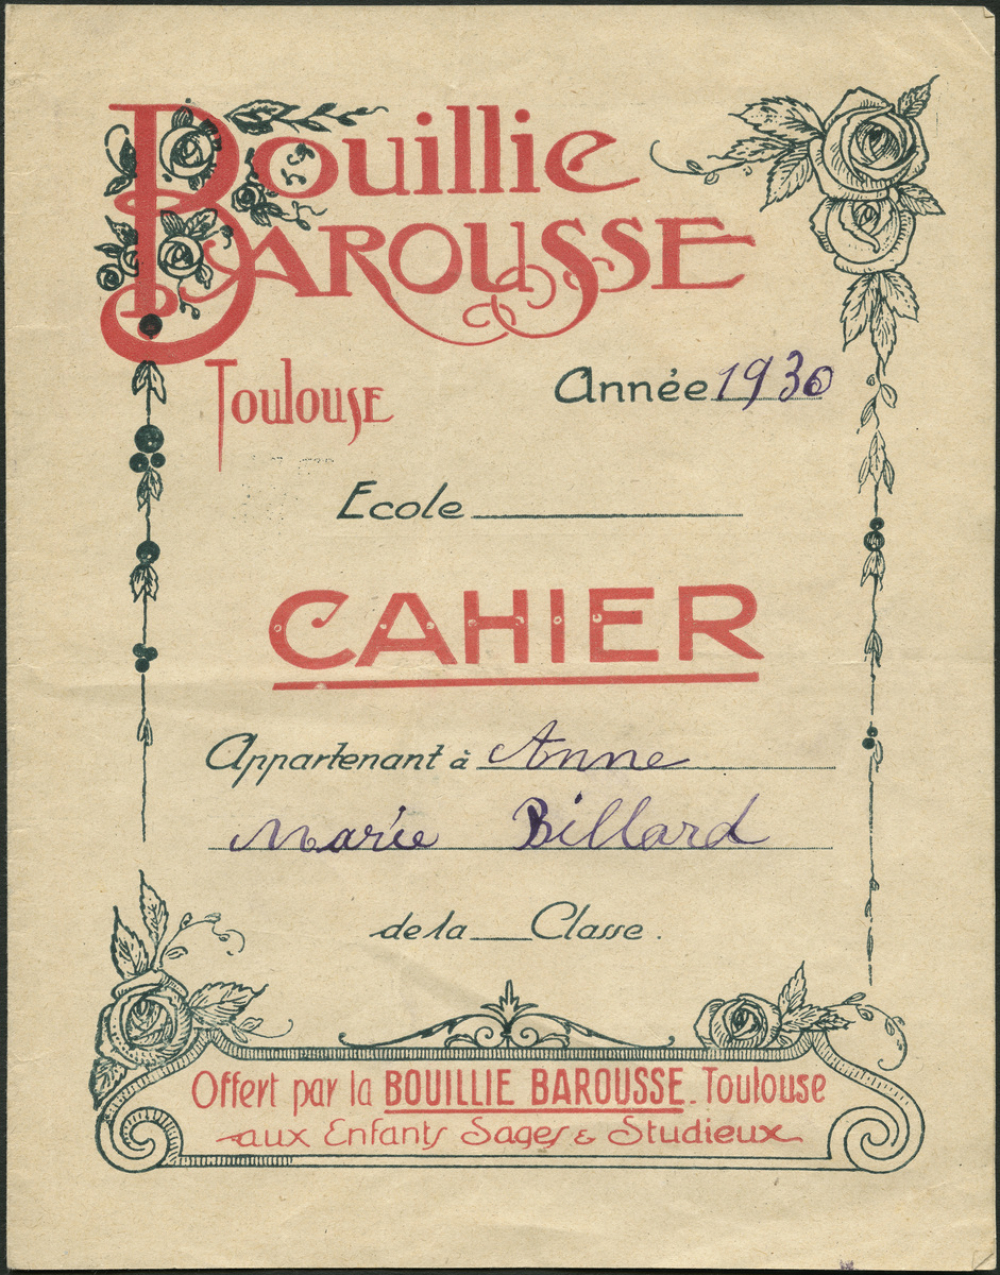 Bouillie
BAROUSSE
Toulouse
Année 1930
Ecole
CAHIER
Appartenant à Anne
Marie Billard
de la Classe.
Offert par la BOUILLIE BAROUSSE. Toulouse
aux Enfants Sages & Studieux